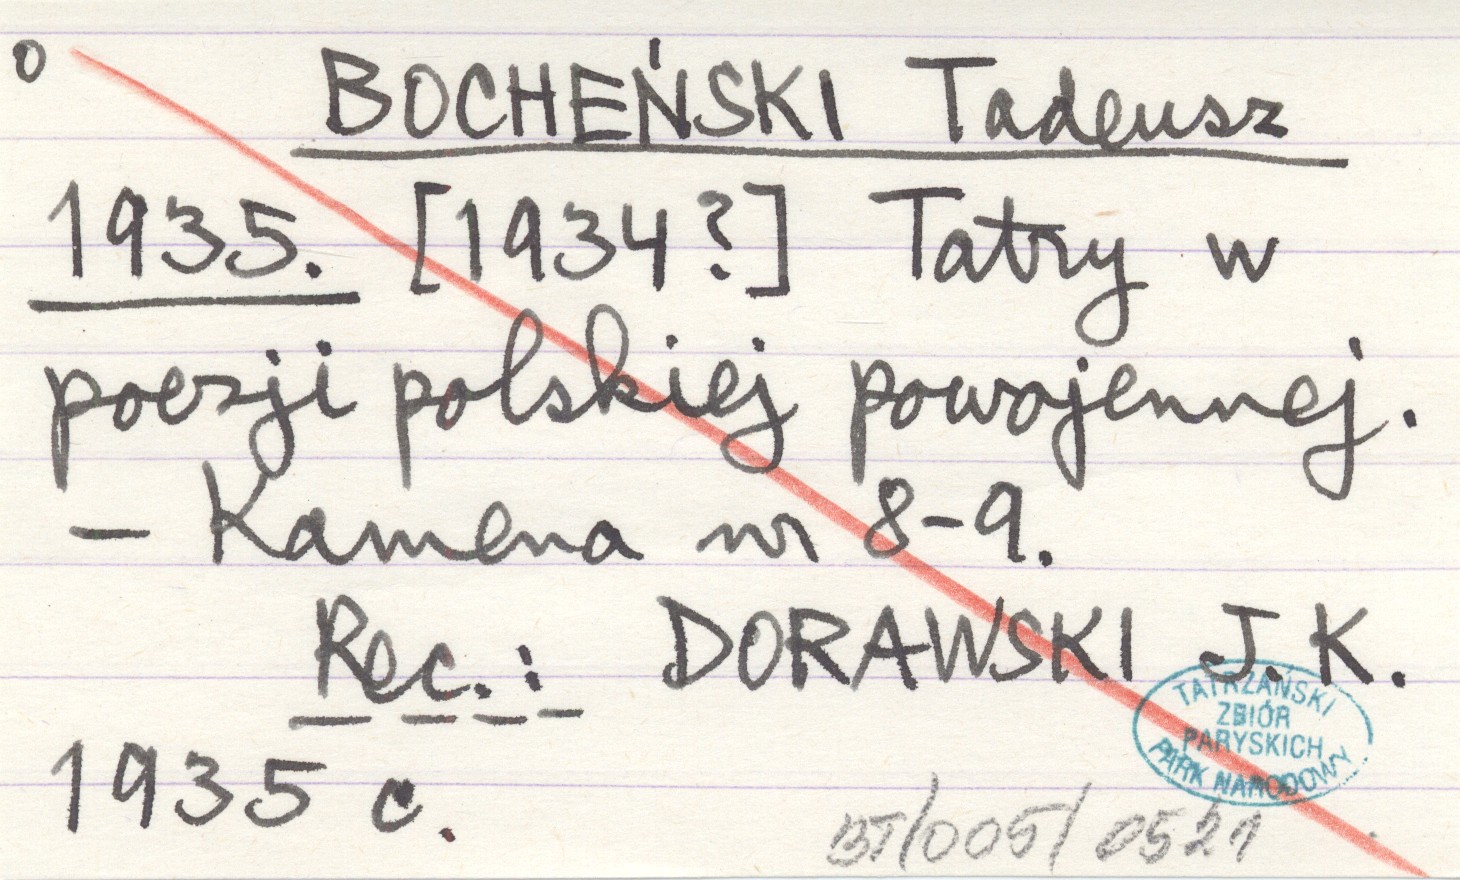 o BOCHEŃSKI Tadeusz
1935. [1934?] Tatry w
poezji polskiej powojennej.
– Kamena nr 8-9.
Rec.: DORAWSKI J. K.
1935 c.
TATRZAŃSKI
ZBIÓR
PARYSKICH
PARK NARODOWY
BT/005/0521